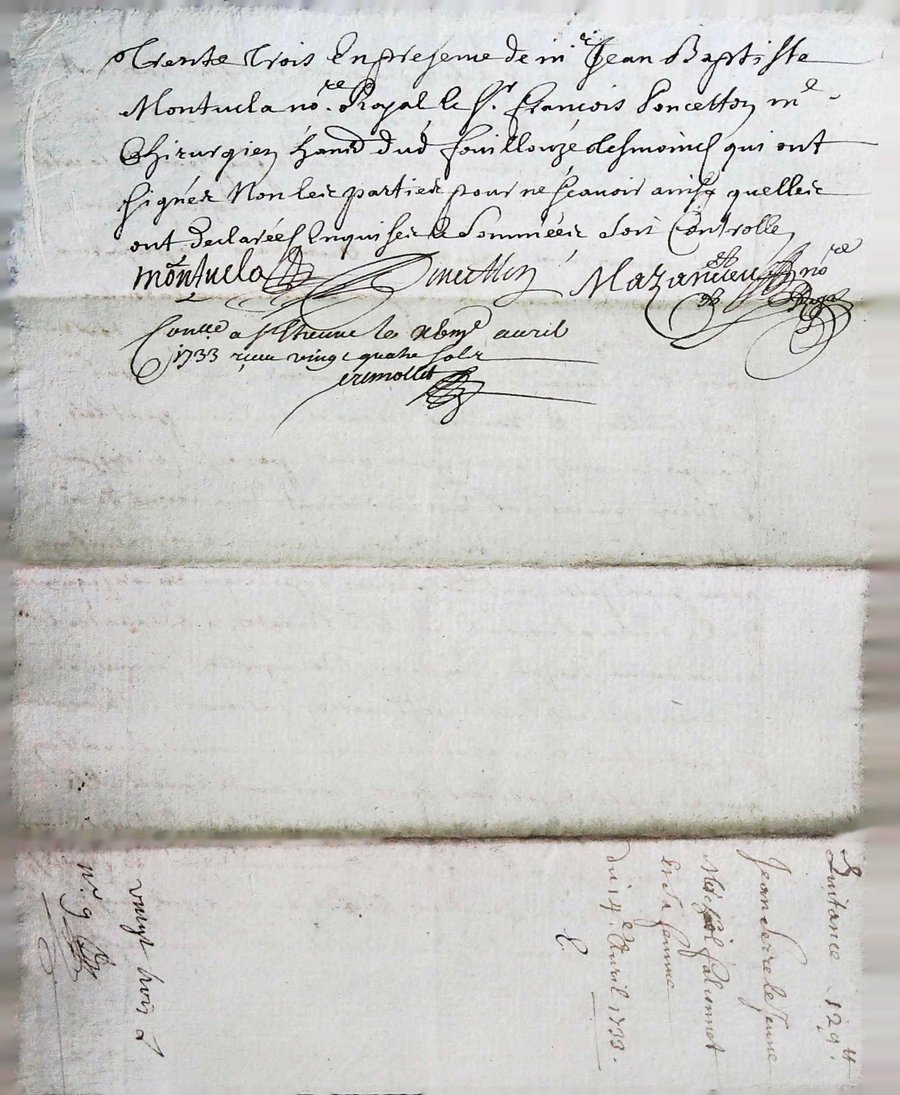 trente trois En presence de mr Jean Baptiste
Montucla nore. Royal le Sr. François Poncetton me
Chirurgien dud fouillouze tesmoins qui ont
signés Non les parties pour ne sçavoir ainsy quelles
ont declarées Enquises & Sommées Soit Controllé
montucla Poncetton Mazancieu nore Royal
Conllé a St Etienne le avril
1733 reçu vingt quatre sols
cremollet
Quitance 129tt
Jean Serre le Jeune
palionnet
et sa femme
Du 14e Avril 1733.
E.
vingt trois
nr. 9